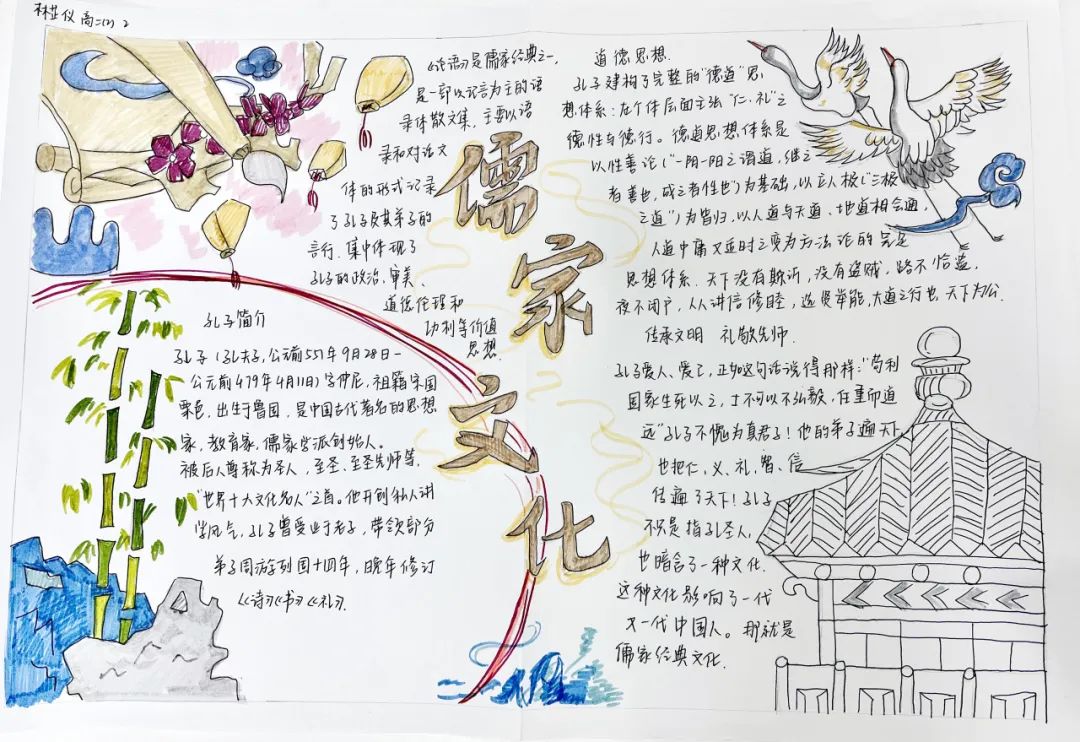 林芷仪 高二(2) 2
《论语》是儒家经典之一,
是一部以记言为主的语
录体散文集, 主要以语
录和对话文
体的形式记录
了孔子及其弟子的
言行. 集中体现了
孔子的政治、审美、
道德伦理和
功利等价值
思想.
儒
家
文
化
孔子简介
孔子(孔夫子,公元前551年9月28日-
公元前479年4月11日)字仲尼,祖籍宋国
栗邑,出生于鲁国.是中国古代著名的思想
家,教育家,儒家学派创始人。
被后人尊称为圣人,至圣、至圣先师等.
"世界十大文化名人"之首。他开创私人讲
学风气,孔子曾受业于老子,带领部分
弟子周游列国十四年,晚年修订
《诗》《书》《礼》.
道德思想.
孔子建构了完整的"德道"思
想体系:在个体层面主张"仁.礼"之
德性与德行。德道思想体系是
以性善论("一阴一阳之谓道,继之
者善也,成之者性也")为基础,以立人极("三极
之道")为旨归,以人道与天道、地道相会通,
人道中庸又适时之变为方法论的完足
思想体系.天下没有欺诈,没有盗贼,路不拾遗.
夜不闭户,人人讲信修睦,选贤举能,大道之行也,天下为公.
传承文明 礼敬先师.
孔子爱人、爱己,正如这句话说得那样:"苟利
国家生死以之,士不可以不弘毅,任重而道
远"孔子不愧为真君子!他的弟子遍天下
也把仁、义、礼、智、信
传遍了天下!孔子
不只是指孔圣人,
也暗含了一种文化.
这种文化影响了一代
又一代中国人。那就是
儒家经典文化.